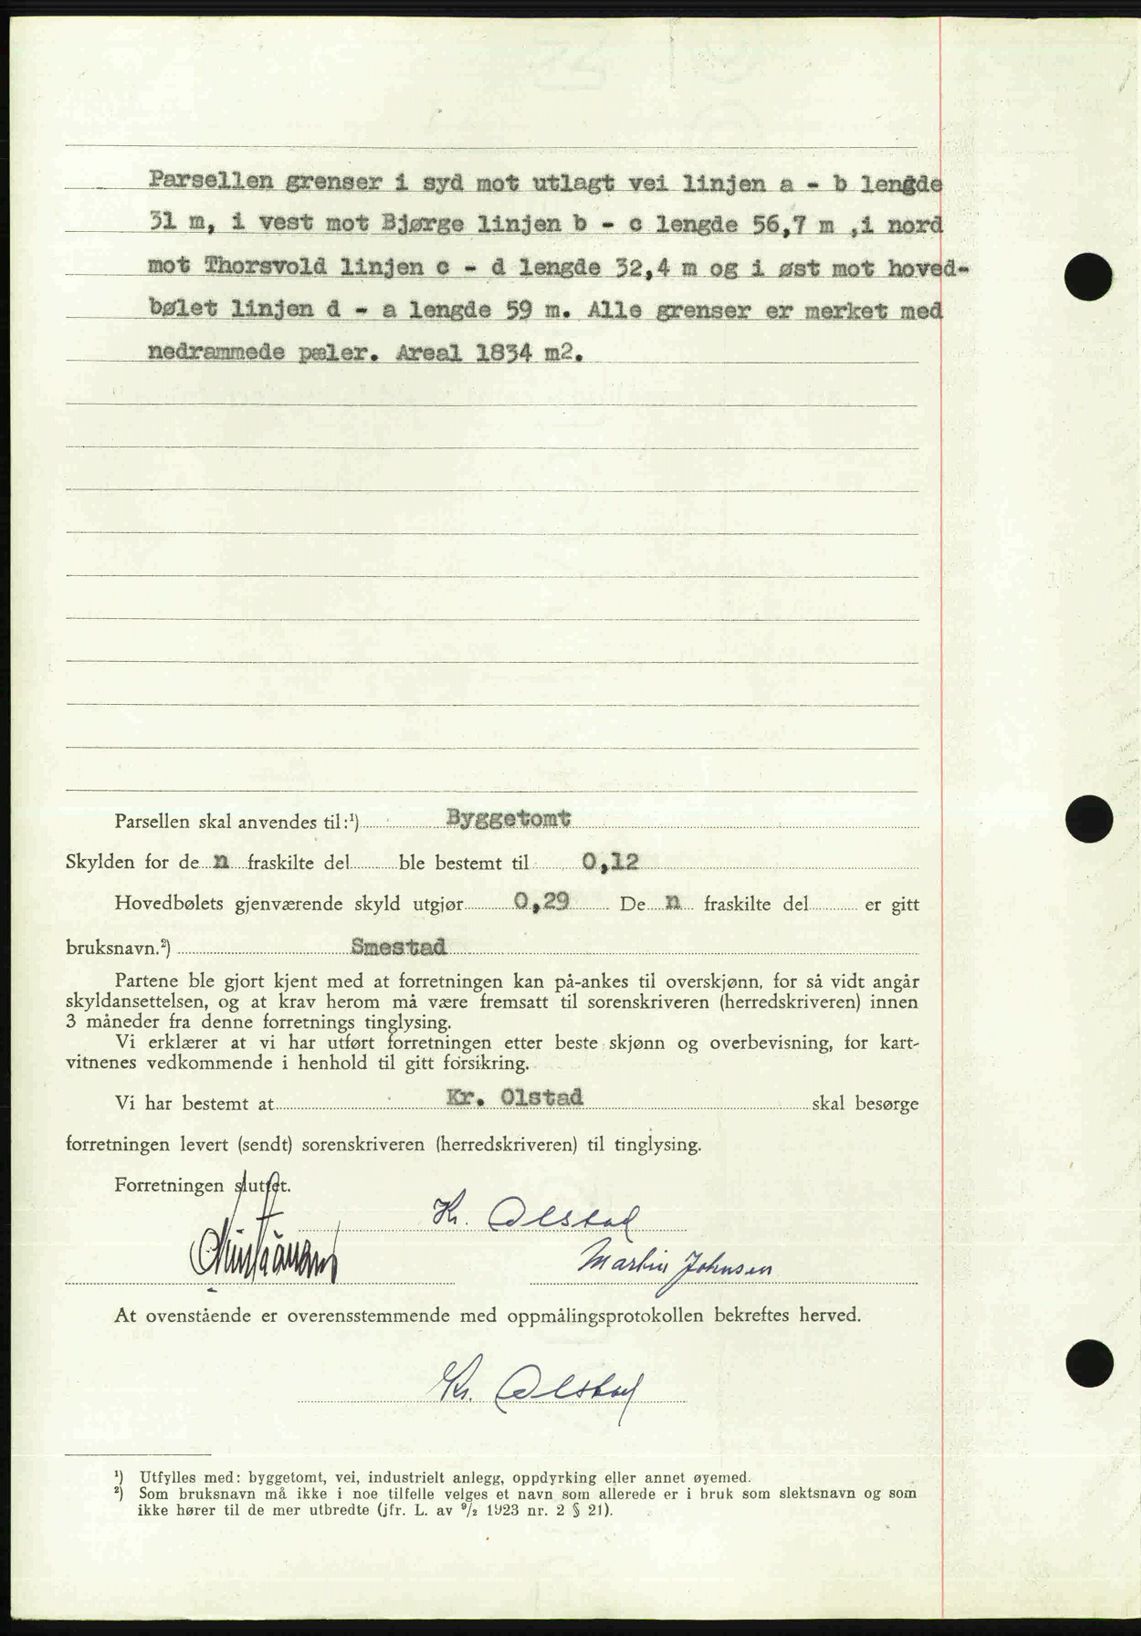 Parsellen grenser i syd mot utlagt vei linjen a - b lengde
31 m, i vest mot Bjørge linjen b - c lengde 56,7 m ,i nord
mot Thorsvold linjen c - d lengde 32,4 m og i øst mot hoved-
bølet linjen d - a lengde 59 m. Alle grenser er merket med
nedrammede pæler. Areal 1834 m2.
Parsellen skal anvendes til:¹) Byggetomt
Skylden for de n fraskilte del ble bestemt til 0,12
Hovedbølets gjenværende skyld utgjør 0,29 De n fraskilte del er gitt
bruksnavn.²) Smestad
Partene ble gjort kjent med at forretningen kan på-ankes til overskjønn, for så vidt angår
skyldansettelsen, og at krav herom må være fremsatt til sorenskriveren (herredskriveren) innen
3 måneder fra denne forretnings tinglysing.
Vi erklærer at vi har utført forretningen etter beste skjønn og overbevisning, for kart-
vitnenes vedkommende i henhold til gitt forsikring.
Vi har bestemt at Kr. Olstad skal besørge
forretningen levert (sendt) sorenskriveren (herredskriveren) til tinglysing.
Forretningen sluttet.
Kr. Olstad
Martin Johnsen
At ovenstående er overensstemmende med oppmålingsprotokollen bekreftes herved.
Kr. Olstad
¹) Utfylles med: byggetomt, vei, industrielt anlegg, oppdyrking eller annet øyemed.
²) Som bruksnavn må ikke i noe tilfelle velges et navn som allerede er i bruk som slektsnavn og som
ikke hører til de mer utbredte (jfr. L. av ⁹/₂ 1923 nr. 2 § 21).